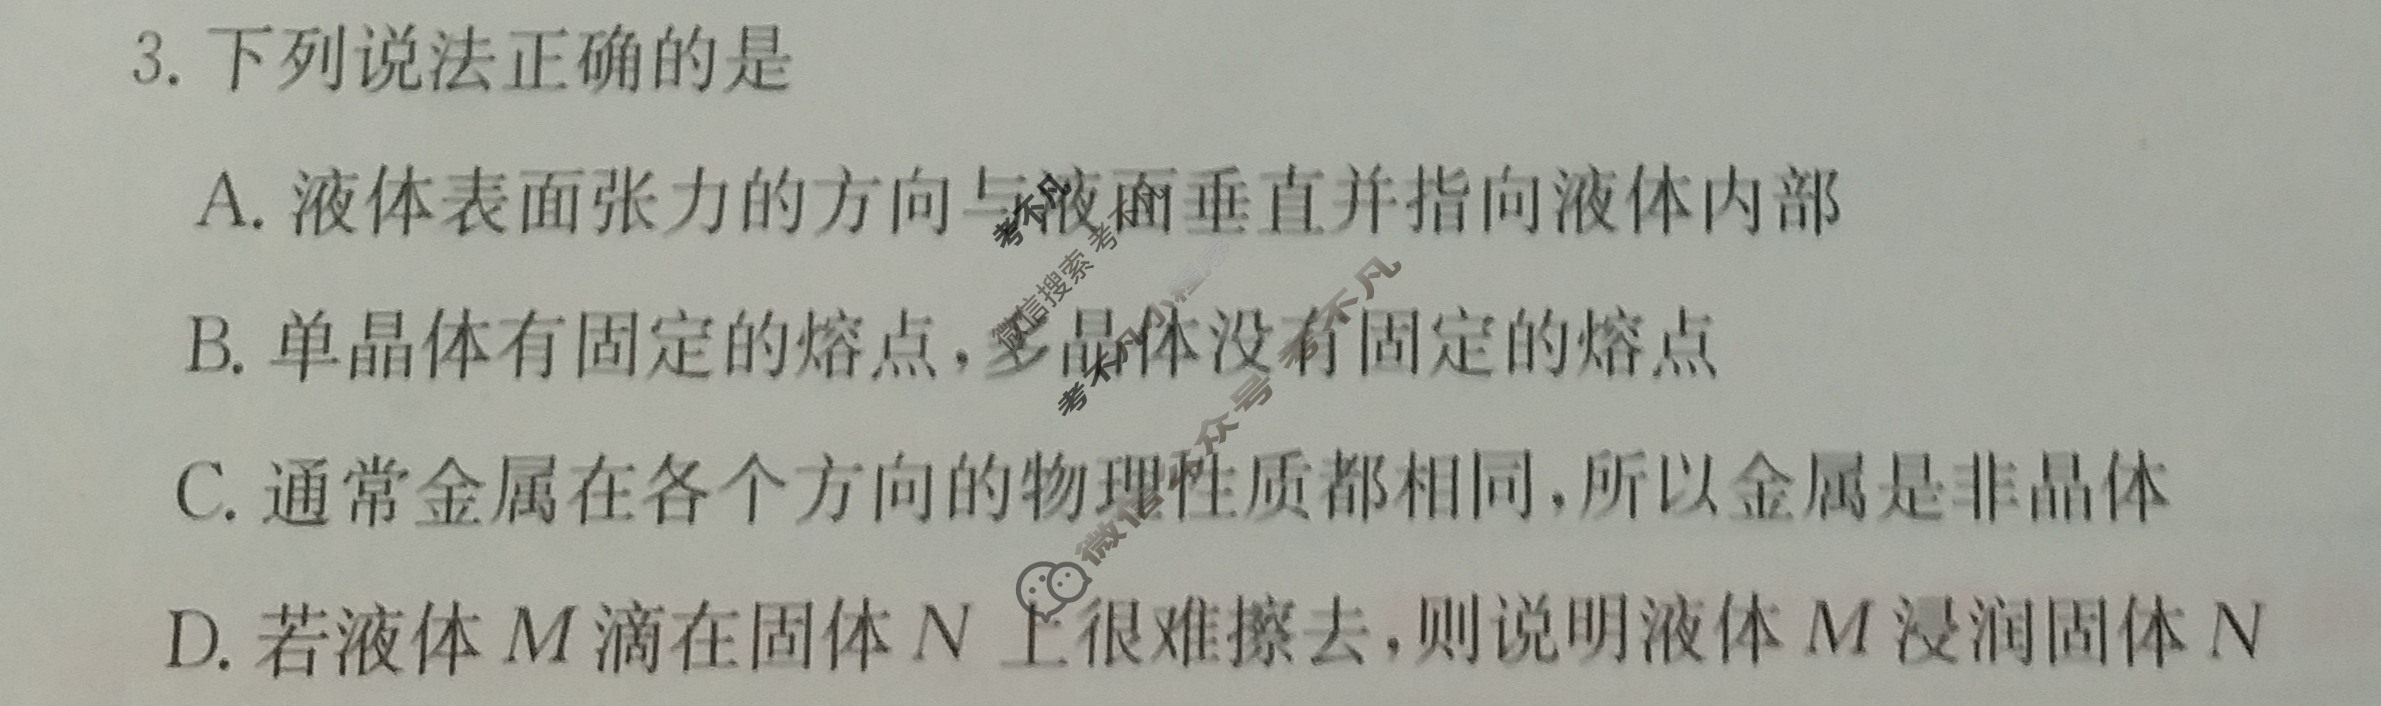 3. 下列说法正确的是
A. 液体表面张力的方向与液面垂直并指向液体内部
B. 单晶体有固定的熔点,多晶体没有固定的熔点
C. 通常金属在各个方向的物理性质都相同,所以金属是非晶体
D. 若液体 M 滴在固体 N 上很难擦去,则说明液体 M 浸润固体 N
考不凡
微信搜索 考
考不凡小程序
微信公众号 考不凡